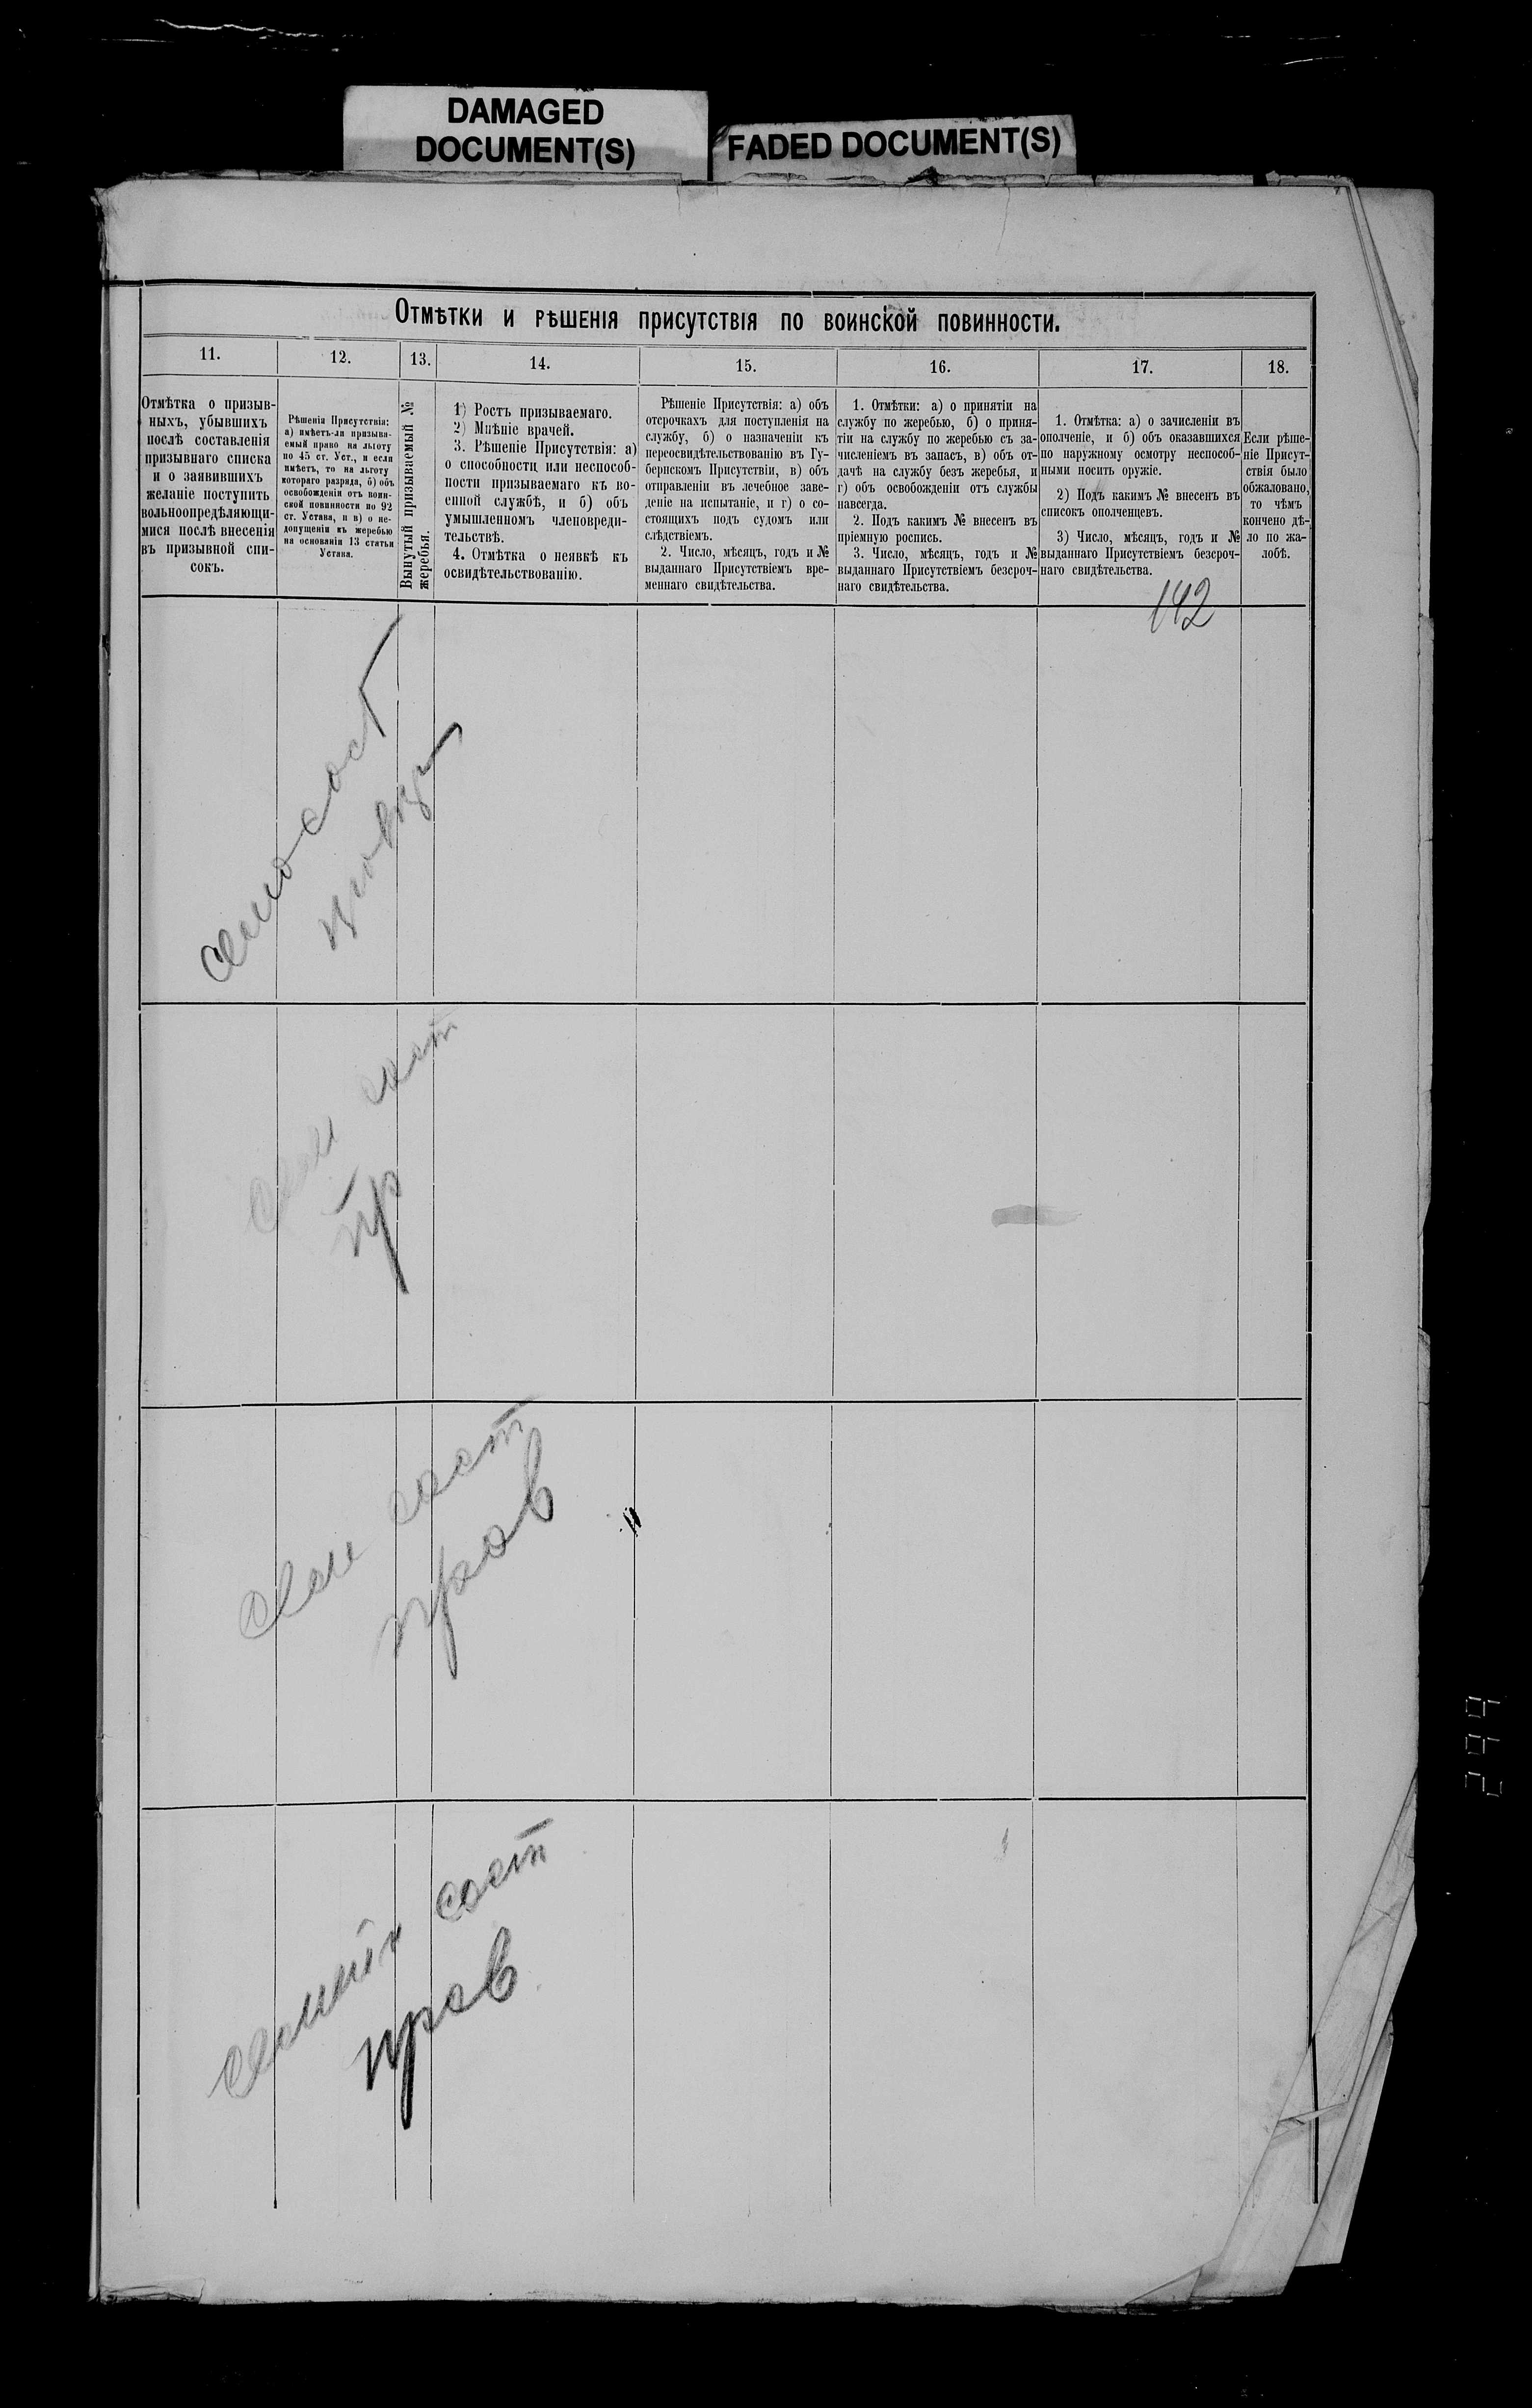 DAMAGED
DOCUMENT(S)
FADED DOCUMENT(S)
Отмѣтки и рѣшенія присутствія по воинской повинности.
11.
12.
13.
14.
15.
16.
17.
18.
Отмѣтка о призыв-
ныхъ, убывшихъ
послѣ составленія
призывнаго списка
и о заявившихъ
желаніе поступить
вольноопредѣляющи-
мися послѣ внесенія
въ призывной спи-
сокъ.
Рѣшенія Присутствія:
а) имѣетъ-ли призыва-
емый право на льготу
по 45 ст. Уст., и если
имѣетъ, то на льготу
котораго разряда, б) объ
освобожденіи отъ воин-
ской повинности по 92
ст. Устава, и в) о не-
допущеніи къ жеребью
на основаніи 13 статьи
Устава.
Вынутый призываемый №
жеребья.
1) Ростъ призываемаго.
2) Мнѣніе врачей.
3. Рѣшеніе Присутствія: а)
о способности или неспособ-
ности призываемаго къ во-
енной службѣ, и б) объ
умышленномъ членовреди-
тельствѣ.
4. Отмѣтка о неявкѣ къ
освидѣтельствованію.
Рѣшеніе Присутствія: а) объ
отсрочкахъ для поступленія на
службу, б) о назначеніи къ
переосвидѣтельствованію въ Гу-
бернскомъ Присутствіи, в) объ
отправленіи въ лечебное заве-
деніе на испытаніе, и г) о со-
стоящихъ подъ судомъ или
слѣдствіемъ.
2. Число, мѣсяцъ, годъ и №
выданнаго Присутствіемъ вре-
меннаго свидѣтельства.
1. Отмѣтки: а) о принятіи на
службу по жеребью, б) о приня-
тіи на службу по жеребью съ за-
численіемъ въ запасъ, в) объ от-
дачѣ на службу безъ жеребья, и
г) объ освобожденіи отъ службы
навсегда.
2. Подъ какимъ № внесенъ въ
пріемную роспись.
3. Число, мѣсяцъ, годъ и №
выданнаго Присутствіемъ безсроч-
наго свидѣтельства.
1. Отмѣтка: а) о зачисленіи въ
ополченіе, и б) объ оказавшихся
по наружному осмотру неспособ-
ными носить оружіе.
2) Подъ какимъ № внесенъ въ
списокъ ополченцевъ.
3) Число, мѣсяцъ, годъ и №
выданнаго Присутствіемъ безсроч-
наго свидѣтельства.
Если рѣше-
ніе Присут-
ствія было
обжаловано,
то чѣмъ
кончено дѣ-
ло по жа-
лобѣ.
142
сост
сем сост
пр
сем сост
пров
сост
пров
299